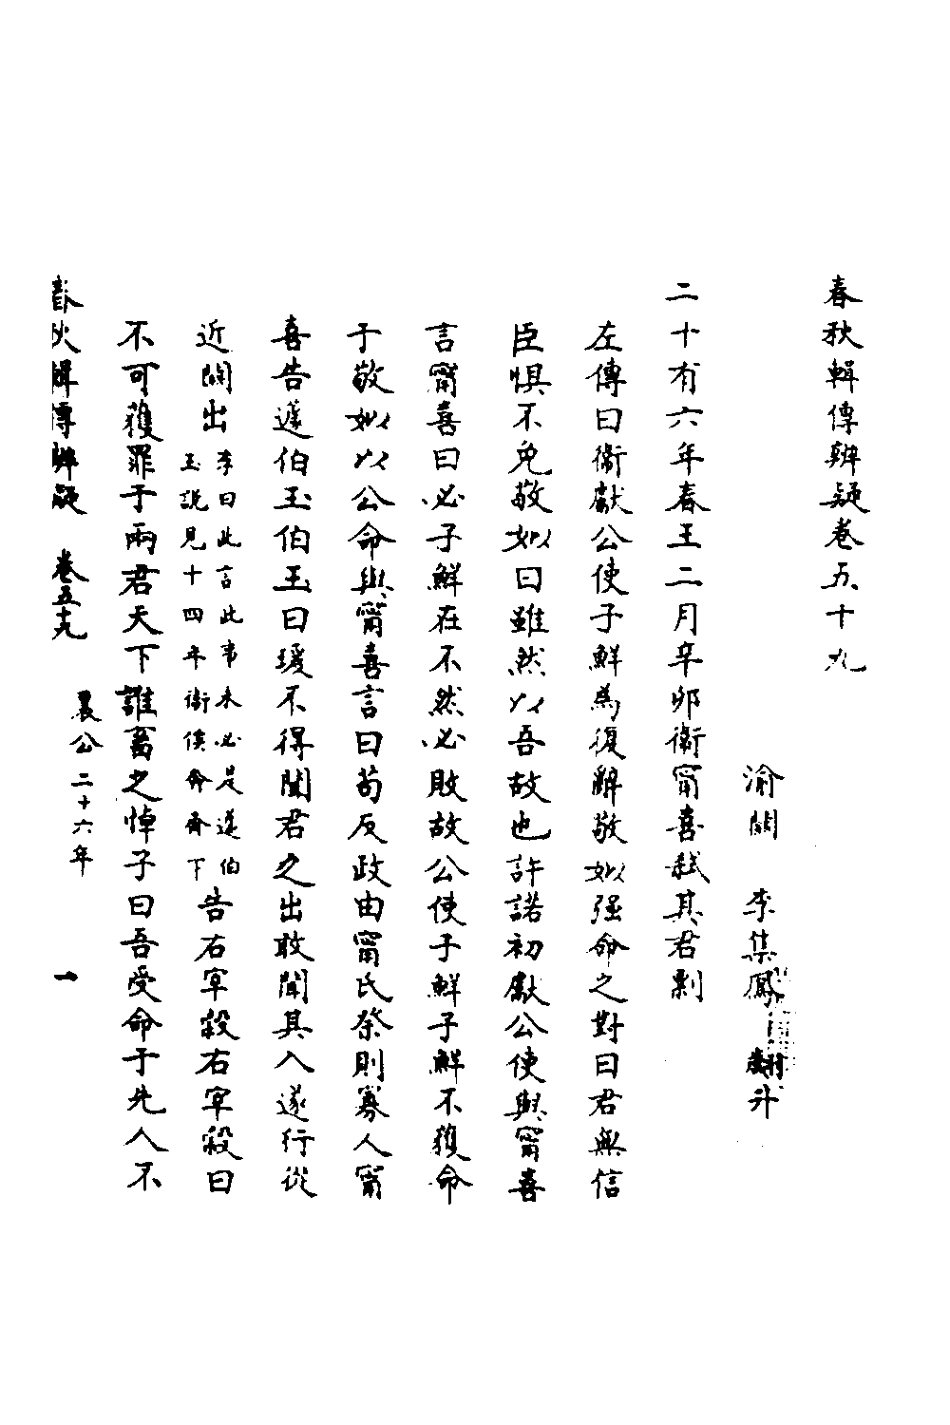 春秋輯傳辨疑卷五十九
渝關 李集鳳 翽升
二十有六年春王二月辛卯衞甯喜弒其君剽
左傳曰衞獻公使子鮮為復辭敬姒強命之對曰君無信
臣懼不免敬姒曰雖然以吾故也許諾初獻公使與甯喜
言甯喜曰必子鮮在不然必敗故公使子鮮子鮮不獲命
于敬姒以公命與甯喜言曰苟反政由甯氏祭則寡人甯
喜告蘧伯玉伯玉曰瑗不得聞君之出敢聞其入遂行從
近關出
李曰此言此事未必是蘧伯
玉說見十四年衞侯奔齊下
告右宰穀右宰穀曰
不可獲罪于兩君天下誰畜之悼子曰吾受命于先人不
春秋輯傳辨疑 卷五十九
襄公二十六年
一